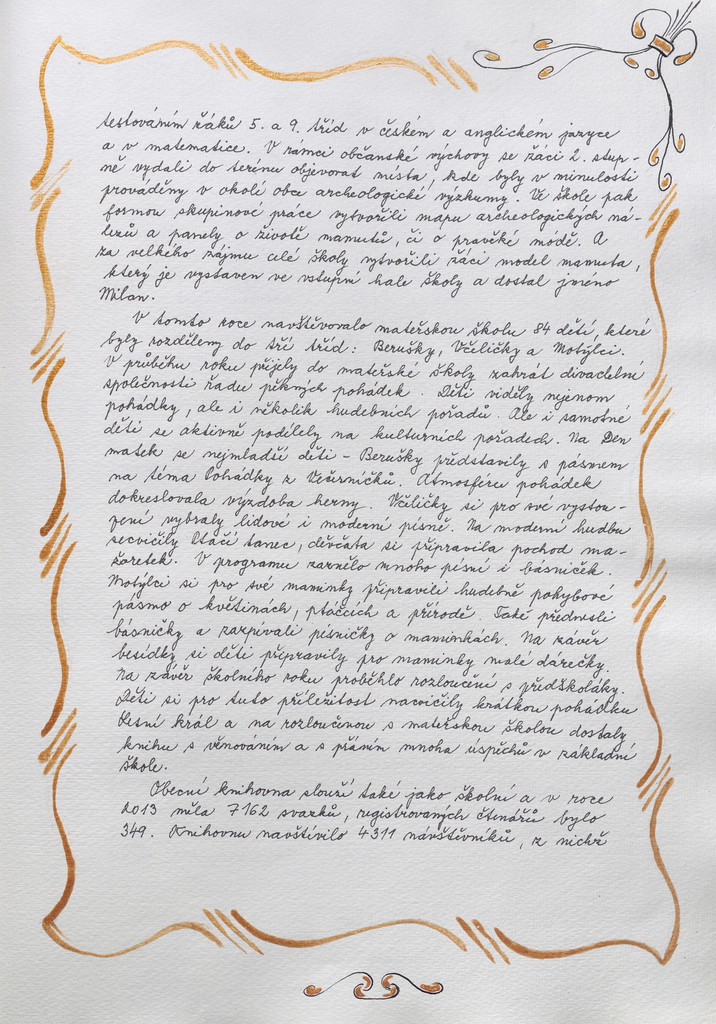 testováním žáků 5. a 9. tříd v českém a anglickém jazyce
a v matematice. V rámci občanské výchovy se žáci 2. stup-
ně vydali do terénu objevovat místa, kde byly v minulosti
prováděny v okolí obce archeologické výzkumy. Ve škole pak
formou skupinové práce vytvořili mapu archeologických ná-
lezů a panely o životě mamutů, či o pravěké módě. A
za velkého zájmu celé školy vytvořili žáci model mamuta,
který je vystaven ve vstupní hale školy a dostal jméno
Milan.
V tomto roce navštěvovalo mateřskou školu 84 dětí, které
byly rozděleny do tří tříd: Berušky, Včeličky a Motýlci.
V průběhu roku přijely do mateřské školy zahrát divadelní
společnosti řadu pěkných pohádek. Děti viděly nejenom
pohádky, ale i několik hudebních pořadů. Ale i samotné
děti se aktivně podílely na kulturních pořadech. Na Den
matek se nejmladší děti - Berušky představily s pásmem
na téma Pohádky z Večerníčků. Atmosféru pohádek
dokreslovala výzdoba herny. Včeličky si pro své vystou-
pení vybraly lidové i moderní písně. Na moderní hudbu
secvičily Ptačí tanec, děvčata si připravila pochod ma-
žoretek. V programu zaznělo mnoho písní i básniček.
Motýlci si pro své maminky připravili hudebně pohybové
pásmo o květinách, ptáčcích a přírodě. Také přednesli
básničky a zazpívali písničky o maminkách. Na závěr
besídky si děti připravily pro maminky malé dárečky.
Na závěr školního roku proběhlo rozloučení s předškoláky.
Děti si pro tuto příležitost nacvičily krátkou pohádku
Lesní král a na rozloučenou s mateřskou školou dostaly
knihu s věnováním a s přáním mnoha úspěchů v základní
škole.
Obecní knihovna slouží také jako školní a v roce
2013 měla 7162 svazků, registrovaných čtenářů bylo
349. Knihovnu navštívilo 4311 návštěvníků, z nichž